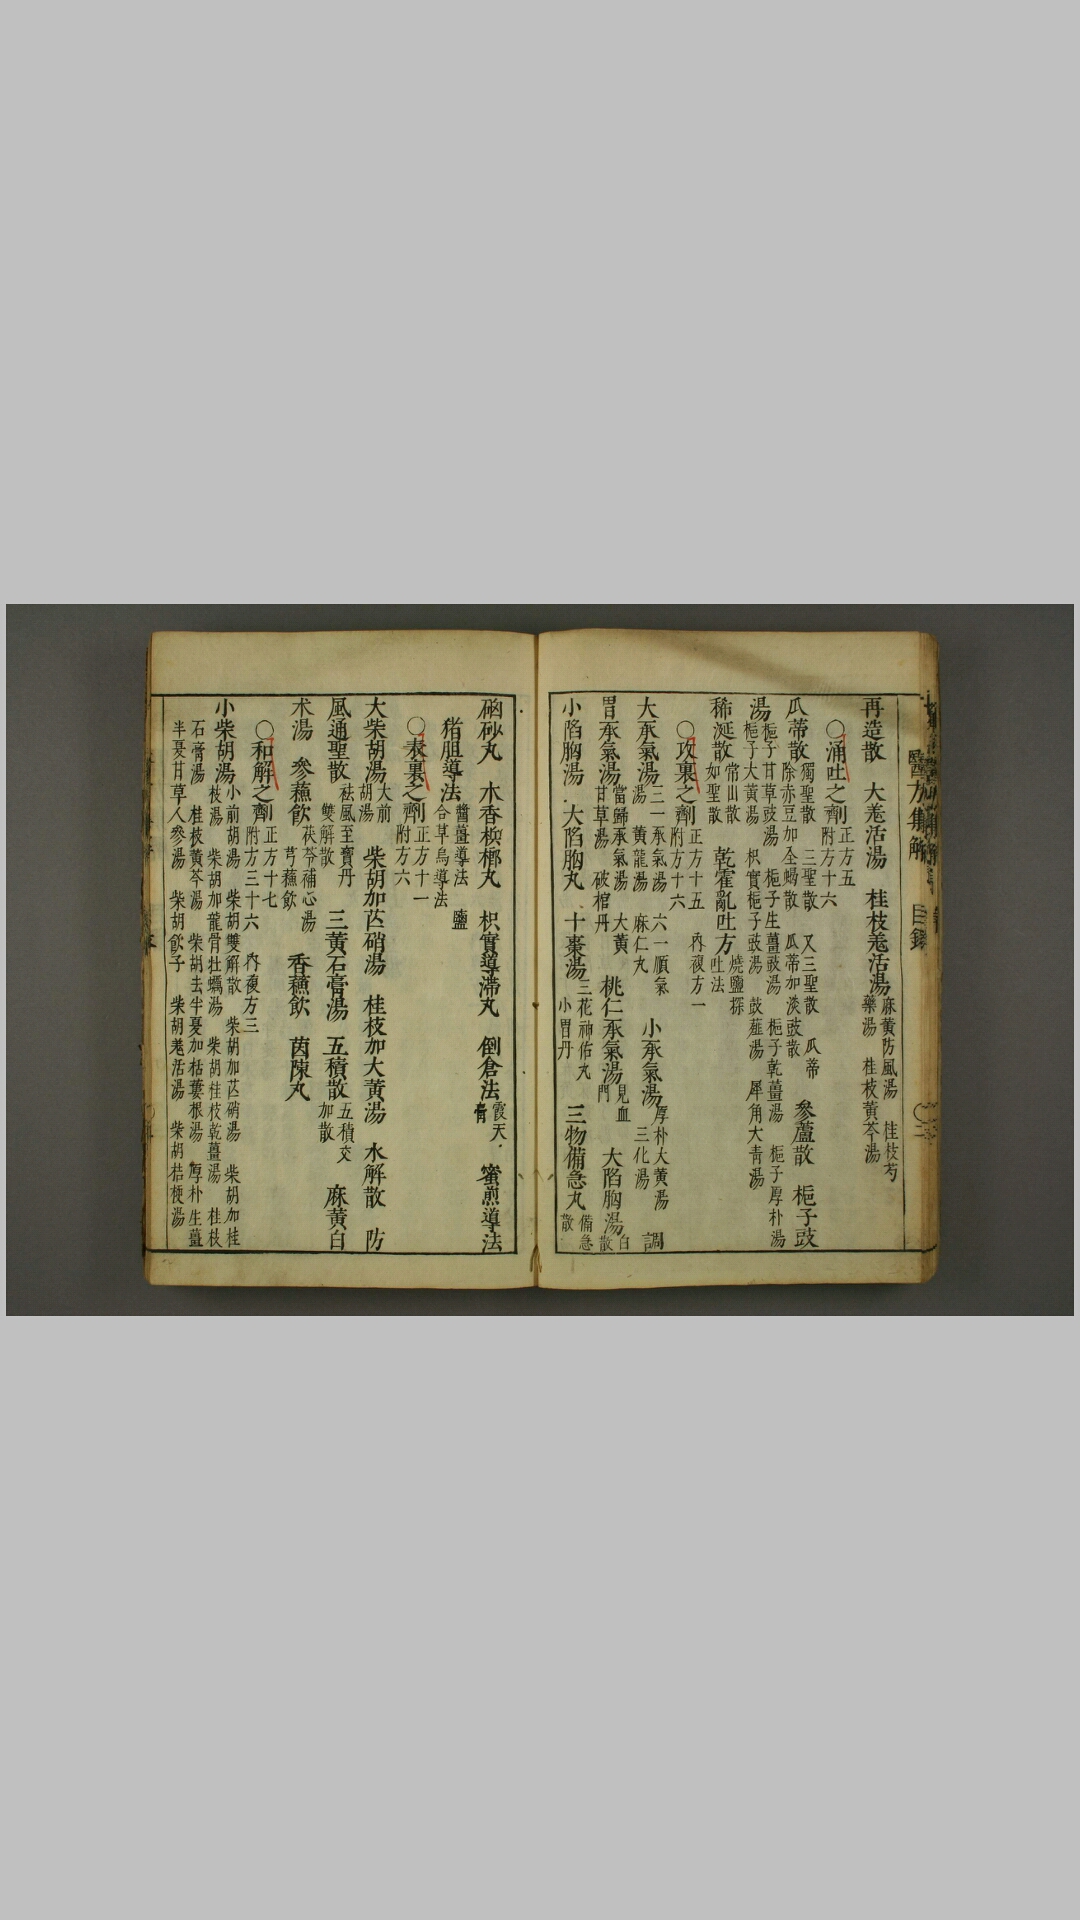 再造散　大羗活湯　桂枝羗活湯麻黄防風湯　桂枝芍藥湯　桂枝黄芩湯
○涌吐之劑正方五附方十六
瓜蒂散獨聖散　三聖散　又三聖散　瓜蒂除赤豆加全蝎散　瓜蒂加淡豉散　參蘆散　梔子豉
湯梔子甘草豉湯　梔子生薑豉湯　梔子乾薑湯　梔子厚朴湯梔子大黄湯　枳實梔子豉湯　豉薤湯　犀角大青湯
稀涎散常山散如聖散　乾霍亂吐方燒鹽探吐法
○攻裏之劑正方十五附方十六　內複方一
大承氣湯三一承氣湯　六一順氣湯　黄龍湯　麻仁丸　小承氣湯厚朴大黄湯三化湯　調
胃承氣湯當歸承氣湯　大黄甘草湯　破棺丹　桃仁承氣湯　大陷胸湯
小陷胸湯　大陷胸丸　十棗湯三花神佑丸小胃丹　三物備急丸備急散
醫方集解　目錄
硇砂丸　木香檳榔丸　枳實導滯丸　倒倉法霞天膏　蜜煎導法
猪胆導法醬薑導法　鹽合草烏導法
○表裏之劑正方十一附方六
大柴胡湯大前胡湯　柴胡加芒硝湯　桂枝加大黄湯　水解散　防
風通聖散祛風至寶丹雙解散　三黄石膏湯　五積散五積交加散　麻黄白
术湯　參蘇飲茯苓補心湯芎蘇飲　香蘇飲　茵陳丸
○和解之劑正方十七附方三十六　內複方三
小柴胡湯小前胡湯　柴胡雙解散　柴胡加芒硝湯　柴胡加桂枝湯　柴胡加龍骨牡蠣湯　柴胡桂枝乾薑湯　桂枝
石膏湯　桂枝黄芩湯　柴胡去半夏加栝蔞根湯　厚朴生薑半夏甘草人參湯　柴胡飲子　柴胡羗活湯　柴胡桔梗湯